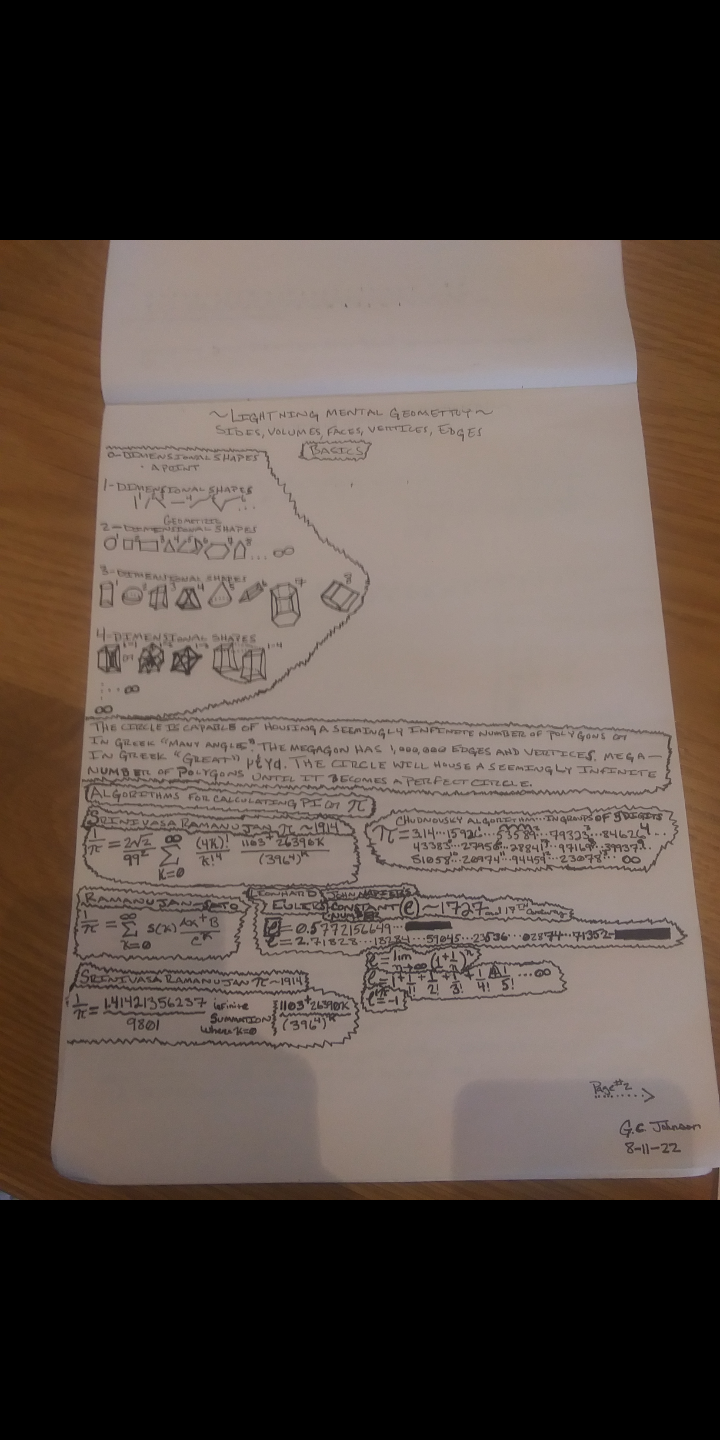 ~LIGHTNING MENTAL GEOMETRY~
SIDES, VOLUMES, FACES, VERTICES, EDGES
BASICS
0-DIMENSIONAL SHAPES
· A POINT
1-DIMENSIONAL SHAPES
GEOMETRIC
2-DIMENSIONAL SHAPES
... ∞
3-DIMENSIONAL SHAPES
4-DIMENSIONAL SHAPES
1-1 or 1-2 1-3 1-4
... ∞
∞
THE CIRCLE IS CAPABLE OF HOUSING A SEEMINGLY INFINITE NUMBER OF POLYGONS or
IN GREEK "MANY ANGLES". THE MEGAGON HAS 1,000,000 EDGES AND VERTICES. MEGA—
IN GREEK "GREAT" THE CIRCLE WILL HOUSE A SEEMINGLY INFINITE
NUMBER OF POLYGONS UNTIL IT BECOMES A PERFECT CIRCLE.
ALGORITHMS FOR CALCULATING PI or π
SRINIVASA RAMANUJAN π ~1914
1/π = 2√2/99² ∞ Σ K=0 (4K)!/K!⁴ 1103+26390K/(396⁴)ᴷ
CHUDNOVSKY ALGORITHM... IN GROUPS OF 5 DIGITS
π = 3.14...15926...53589...79323...84626...
43383...27950...28841...97169...39937...
51058...20974...94459...23078... ∞
RAMANUJAN-SATO
1/π = ∞ Σ K=0 S(K) AK+B/Cᴷ
LEONHARD JOHN NAPIER'S
EULER'S CONSTANT NUMBER (e) ~1727 and 17TH Century
e = 0.5772156649...
e = 2.71828...18284...59045...23536...02874...71352-
e = lim n→∞ (1+1/n)ⁿ
e = 1+1/1!+1/2!+1/3!+1/4!+1/5! ... ∞
e = -1
SRINIVASA RAMANUJAN π ~1914
1/π = 1.41421356237/9801 infinite SUMMATION where K=0 1103+26390K/(396⁴)ᴷ
Page #2
G.C Johnson
8-11-22